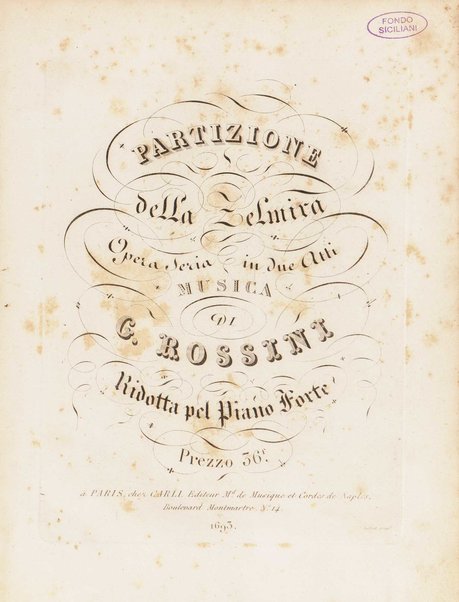 FONDO
SICILIANI
PARTIZIONE
della Zelmira
Opera Seria in due Atti
MUSICA
DI
G. ROSSINI
Ridotta pel Piano Forte
Prezzo 36.f
à PARIS, chez CARLI Editeur Md. de Musique et Cordes de Naples,
Boulevard Montmartre No. 14.
1693.